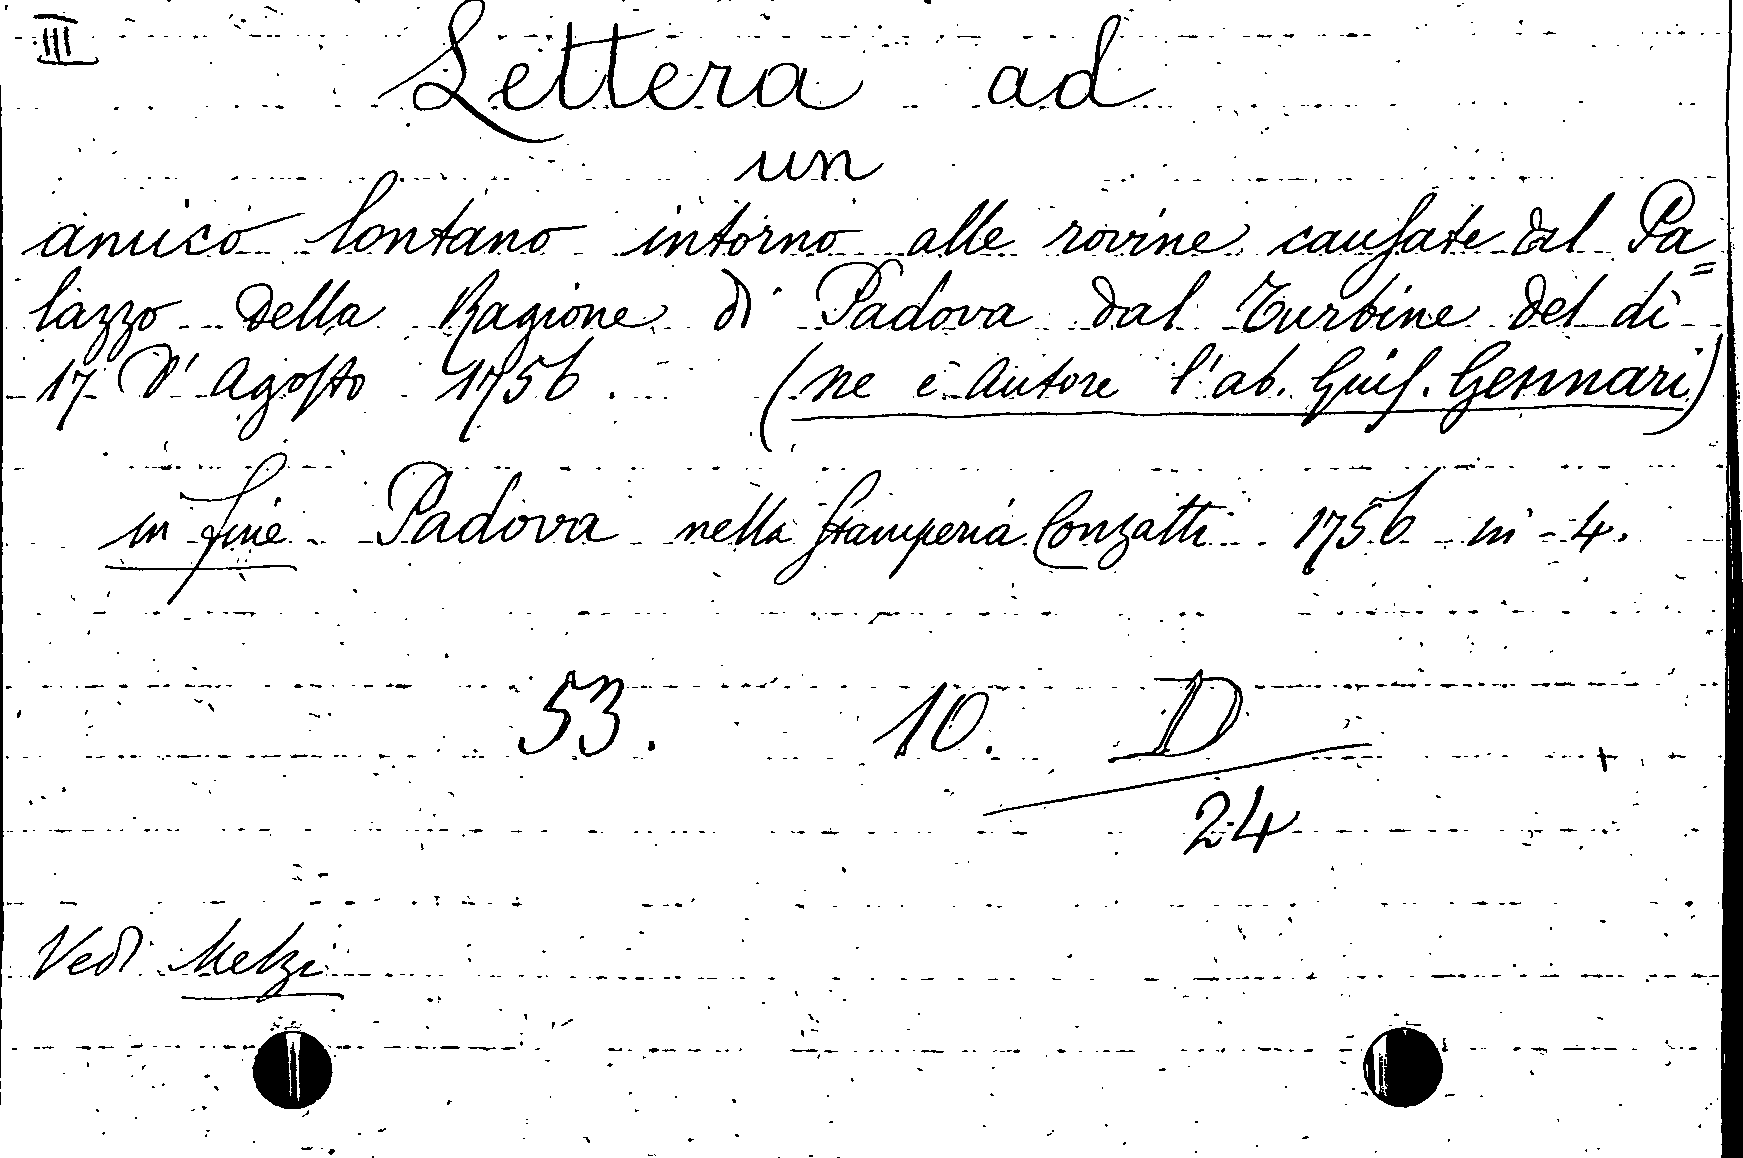 III
Lettera ad
un
amico lontano intorno alle rovine causate dal Pa=
lazzo della Ragione di Padova dal Turbine del dì
17 d' Agosto 1756. (ne è autore l'ab. Guis. Gennari)
in fine Padova nella Stamperia Conzatti 1756 in-4.
53. 10. D
24
Vedi Melzi